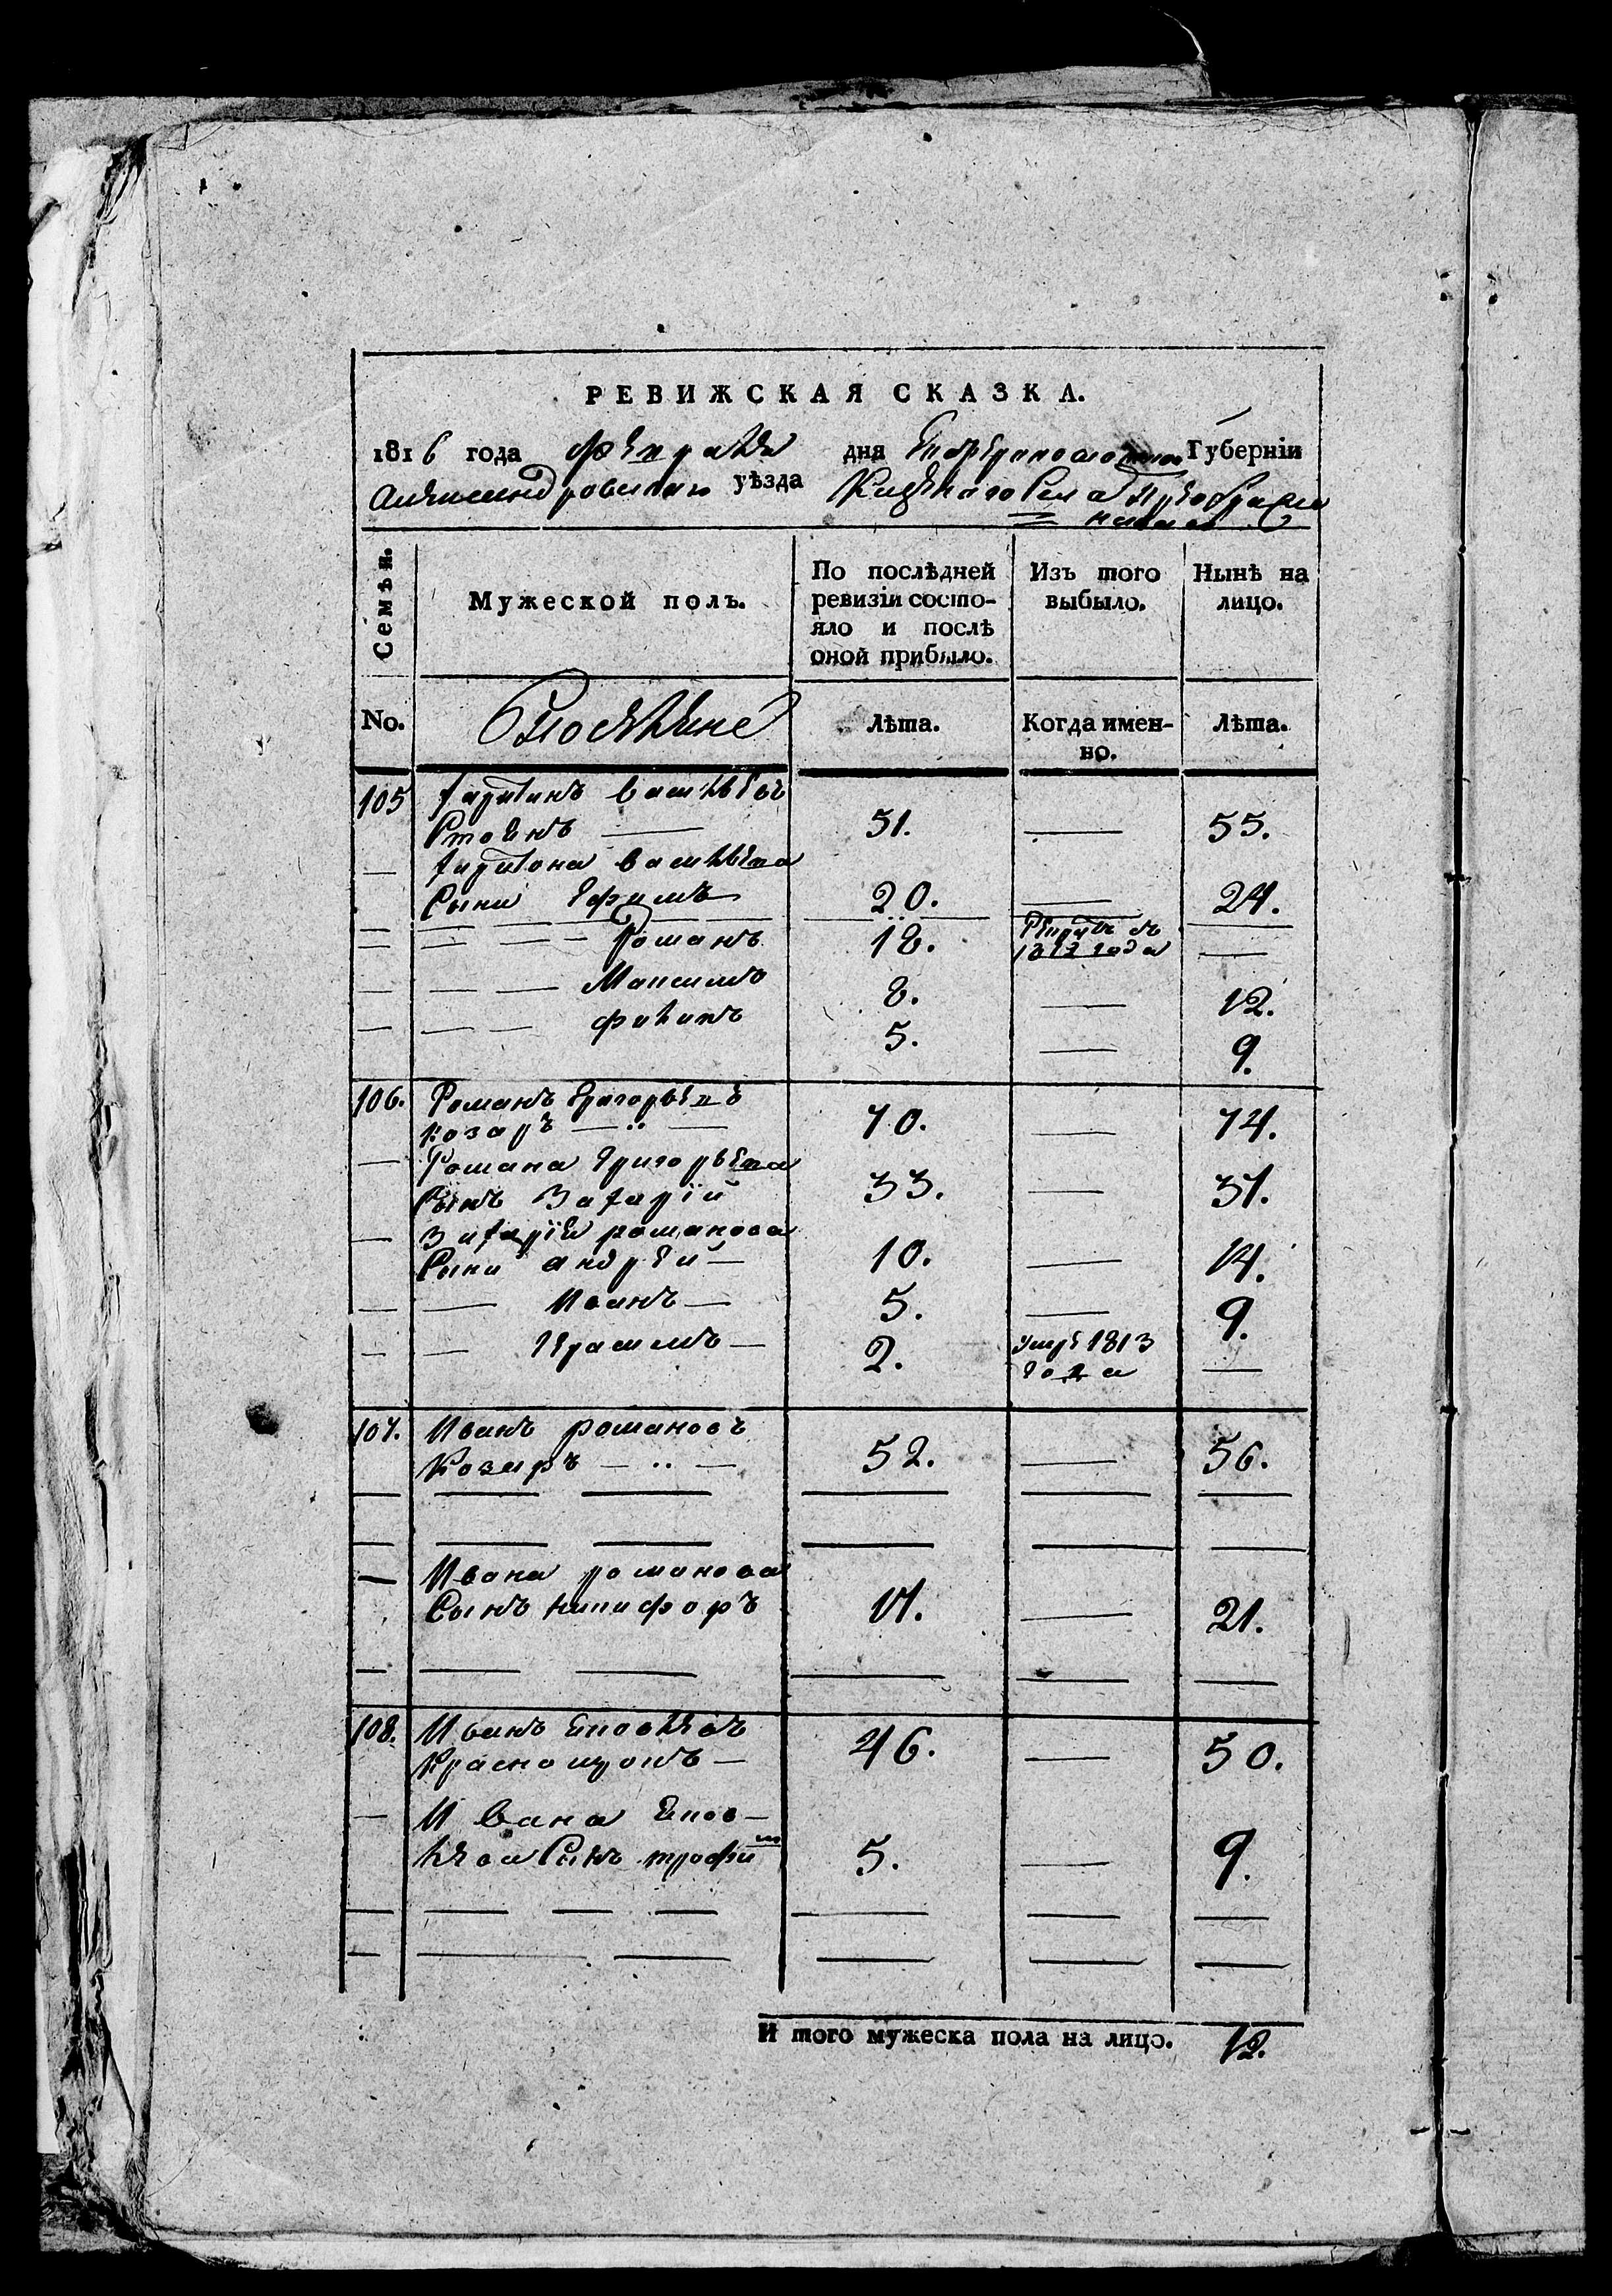 РЕВИЖСКАЯ СКАЗКА.
1816 года февраля дня Екатеринославской Губерніи
Александровскаго уѣзда Казеннаго Села Преображен
скаго
Семьи. Мужеской полъ. По послѣдней ревизіи состо-яло и послѣ оной прибыло. Изъ того выбыло. Нынѣ на лицо.
No. Лѣта. Когда имен-но. Лѣта.
105 Харитонъ васильевъ
Стоенъ — 51. — 55.
— Харитона васильева
Сыни Ефимъ 20. — 24.
— — — Романъ 18. Рекрутъ въ
1812 года —
— — — Максимъ 8. — 12.
— — — филипъ 5. — 9.
106. Романъ Григорьевъ
козаръ — 70. — 74.
— Романа Григорьева
Сынъ Захарій 33. — 37.
— Захарія романова
Сыни андрей — 10. — 14.
— — Иванъ — 5. — 9.
— — Герасимъ — 2. Умре 1813
года —
107. Иванъ романовъ
Козаръ — 52. — 56.
— Ивана романова
Сынъ никифоръ 17. — 21.
108. Иванъ яковлевъ
Краснощокъ — 46. — 50.
— Ивана яков-
лева Сынъ трофим 5. — 9.
И того мужеска пола на лицо. 12.